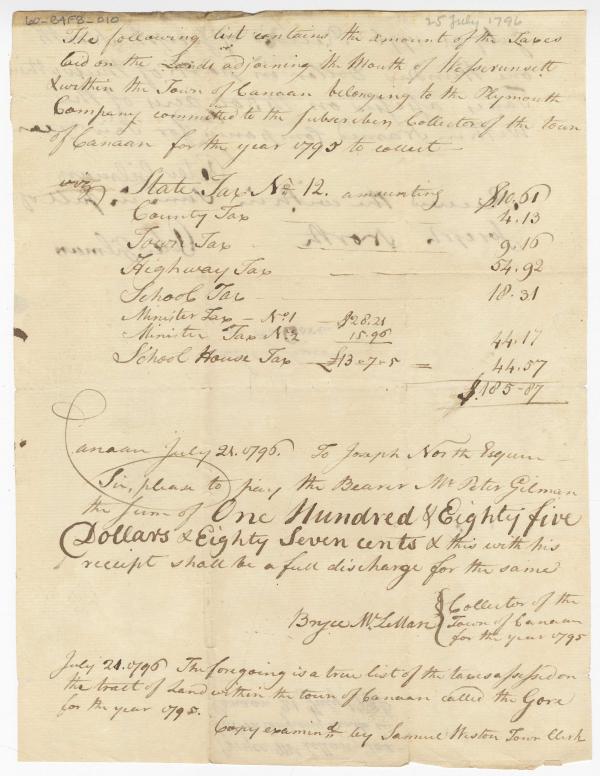 60-B4F8-010
25 July 1796
The following list contains the amount of the Taxes
laid on the Lands adjoining the Mouth of Wesserunsett
& within the Town of Canaan belonging to the Plymouth
Company committed to the subscriber Collector of the town
of Canaan for the year 1795 to collect
viz. State Tax No 12. amounting $10.61
County Tax 4.13
Town Tax 9.16
Highway Tax 54.92
School Tax 18.31
Minister Tax - No 1 - $28.21
Minister Tax No 2 15.96 44.17
School House Tax - £13-7-5 = 44.57
$.185-87
Canaan July 21. 1796. To Joseph North Esquire
Sir, please to pay the Bearer Mr Peter Gilman
the sum of One Hundred & Eighty five
Dollars & Eighty Seven cents & this with his
receipt shall be a full discharge for the same
Bryce McLellan { Collector of the
Town of Canaan
for the year 1795
July 21. 1796 The foregoing is a true list of the taxes assessed on
the tract of Land within the town of Canaan called the Gore
for the year 1795.
Copy examind by Samuel Weston Town Clerk